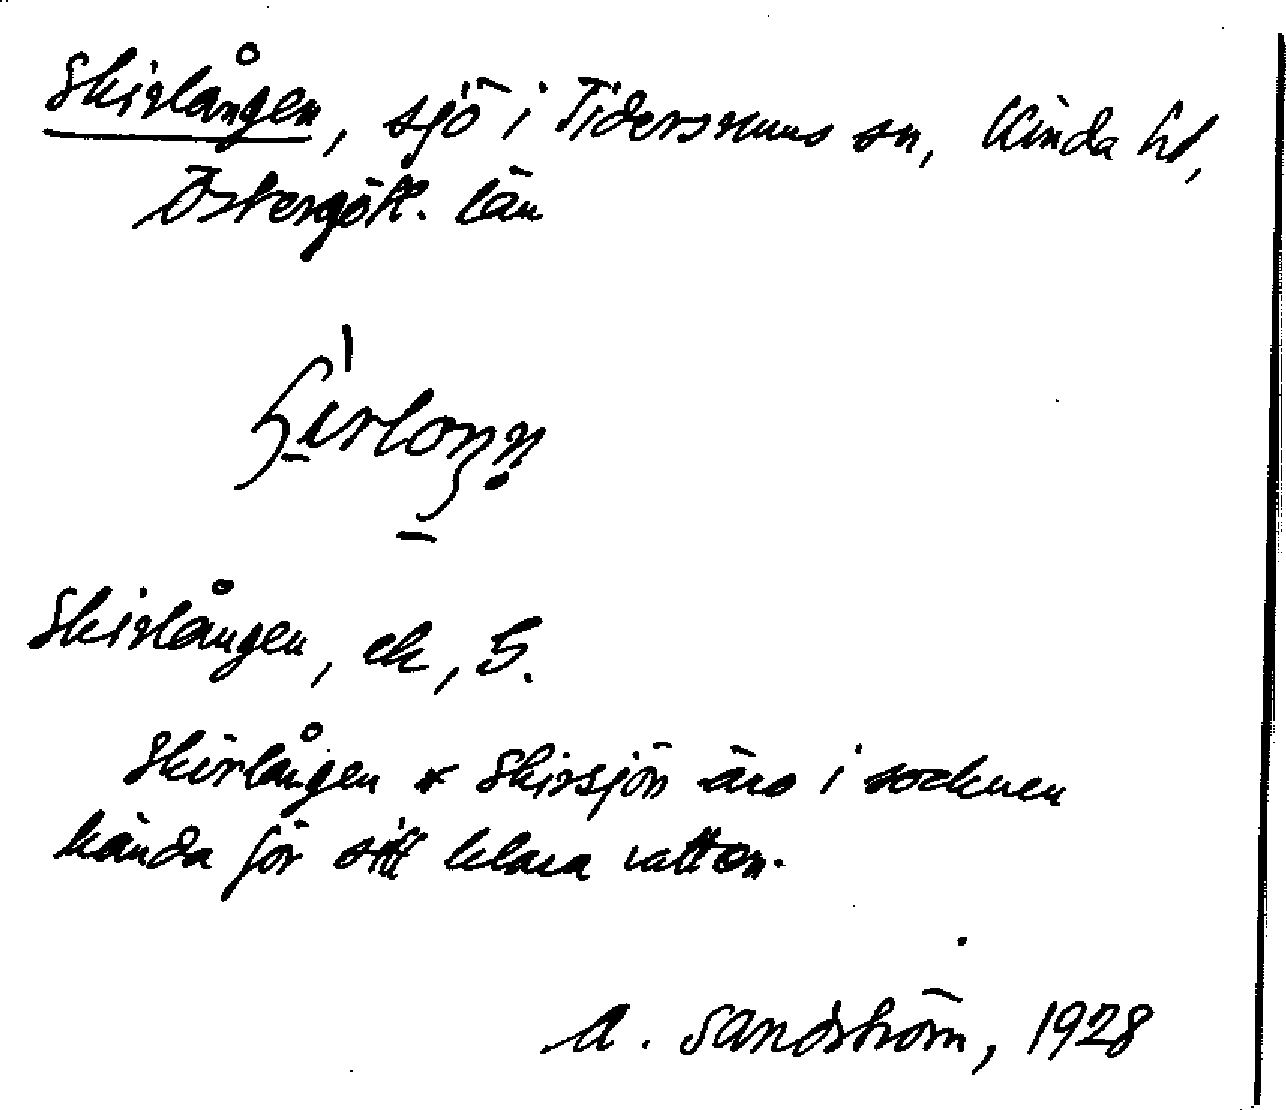 Skirlången, sjö i Tidersrums sn, Kinda hd,
Östergötl. län
Skirlången, ek, S.
Skirlången * Skirsjön äro i socknen
kända för sitt klara vatten.
A. Sandström, 1928